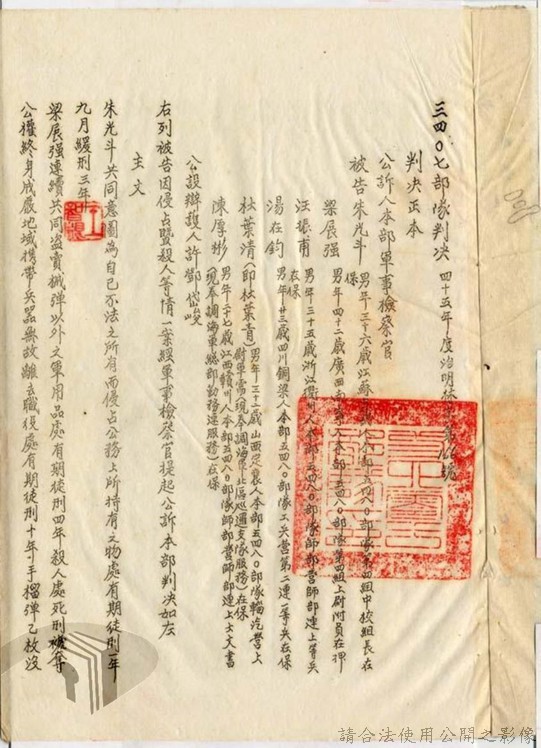 三四○七部隊判決 四十五年度治明
判決正本
公訴人本部軍事檢察官
被告朱光斗 男年三十六歲江蘇 人本部五四八○部隊第四組中校組長在保
梁展强 男年四十二歲廣西 人本部五四八○部隊第四組上尉附員在押
汪振甫 男年三十五歲浙江衢州人本部五四八○部隊師部營師部連上等兵在保
湯在鈞 男年廿三歲四川銅梁人本部五四八○部隊工兵營第二連一等兵在保
杜葉清(即杜葉青) 男年三十二歲山西定襄人本部五四八○部隊輜汽營上尉軍需(現奉調海軍北區巡邏支隊服務)在保
陳厚彬 男年二十七歲江西贛州人本部五四八○部隊師部營師部連上士文書(現奉調海軍總部勤務連服務)在保
公設辯護人許鄧岱峻
右列被告因侵占暨殺人等情一案經軍事檢察官提起公訴本部判決如左
主文
朱光斗共同意圖為自己不法之所有而侵占公務上所持有之物處有期徒刑一年
九月緩刑三年
梁展强連續共同盜賣械彈以外之軍用品處有期徒刑四年殺人處死刑褫奪
公權終身戒嚴地域携帶兵器無故離去職役處有期徒刑十年手榴彈乙枚沒
請合法使用公開之影像